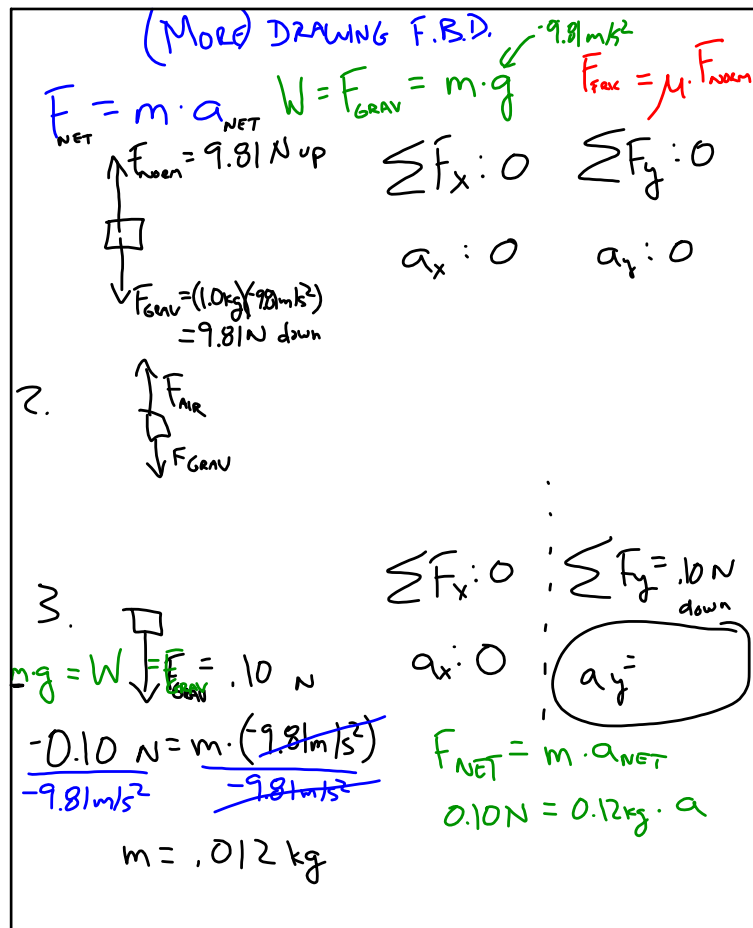 (MORE) DRAWING F.B.D.
-9.81 m/s²
F_NET = m · a_NET
W = F_GRAV = m · g
F_FRIC = μ · F_NORM
F_NORM = 9.81 N up
ΣF_x : 0
ΣF_y : 0
a_x : 0
a_y : 0
F_GRAV = (1.0 kg)(-9.81 m/s²)
= 9.81 N down
2.
F_AIR
F_GRAV
3.
ΣF_x : 0
ΣF_y = .10 N
down
m·g = W = F_GRAV = .10 N
a_x : 0
a_y =
-0.10 N = m · (-9.81 m/s²)
-9.81 m/s² -9.81 m/s²
F_NET = m · a_NET
0.10 N = 0.12 kg · a
m = .012 kg